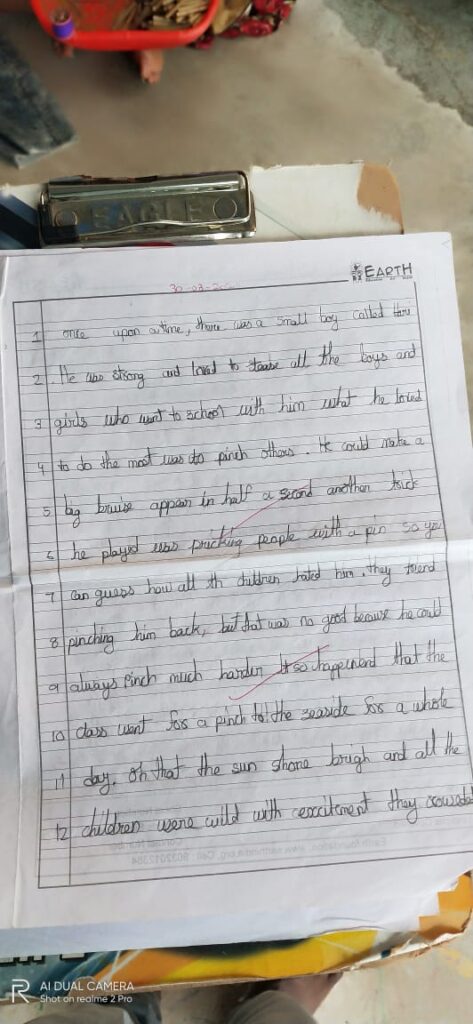 EAGLE
EARTH
30-03-
1 once upon a time, there was a small boy called Hari
2. He was strong and loved to tease all the boys and
3 girls who went to school with him what he loved
4 to do the most was to pinch others. He could make a
5 big bruise appear in half a second another trick
6 he played was pricking people with a pin so you
7 can guess how all th children hated him. they tried
8 pinching him back, but that was no good because he could
9 always pinch much harder It so happenend that the
10 class went for a pinch to the seaside for a whole
11 day. oh that the sun shone brigh and all the
12 children were wild with excitement they crowded
AI DUAL CAMERA
Shot on realme 2 Pro